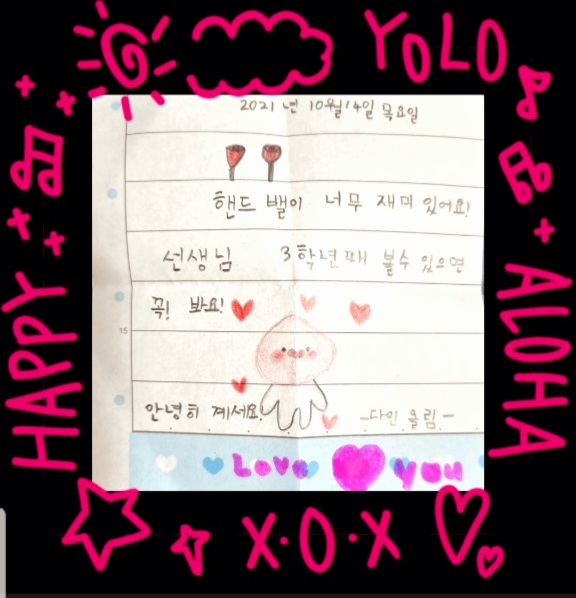 YOLO
2021 년 10월 14일 목요일
핸드 밸이 너무 재미 있어요!
선생님 3학년때 볼수 있으면
꼭! 봐요!
15
안녕히 계세요.
-다인 올림-
Love you
HAPPY
ALOHA
X·O·X